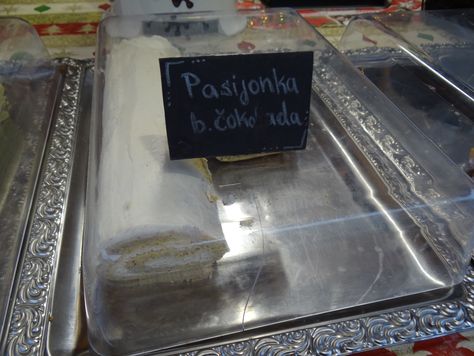 Pasijonka
b. čokolada